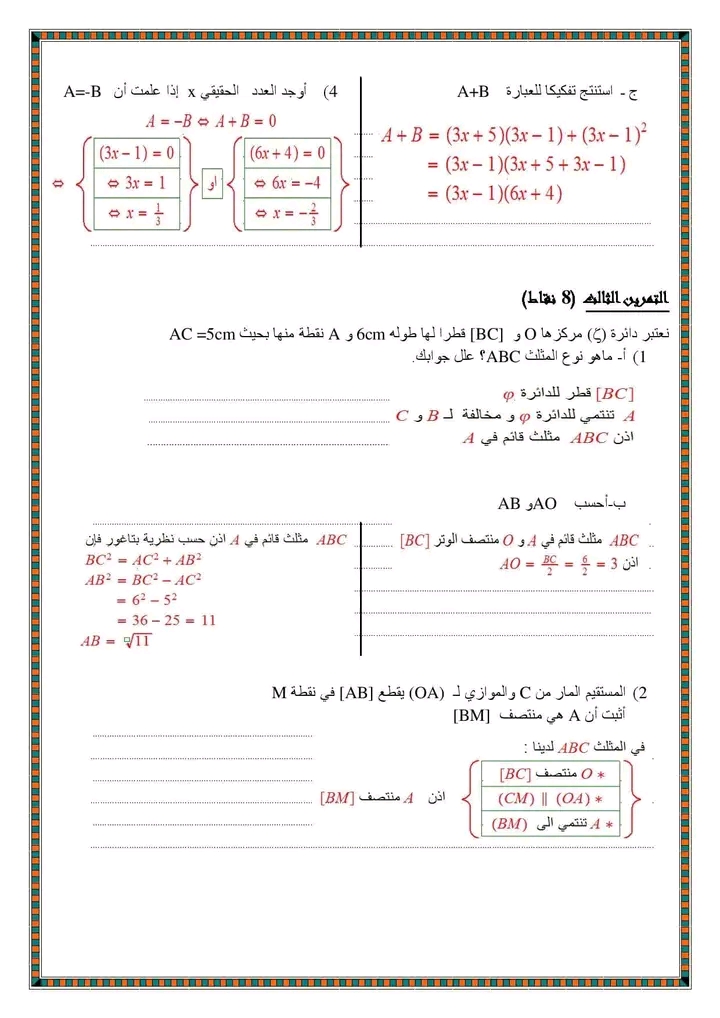 ج - استنتج تفكيكا للعبارة A+B
A + B = (3x + 5)(3x − 1) + (3x − 1)²
= (3x − 1)(3x + 5 + 3x − 1)
= (3x − 1)(6x + 4)
4) أوجد العدد الحقيقي x إذا علمت أن A=-B
A = −B ⇔ A + B = 0
(6x + 4) = 0
⇔ 6x = −4
⇔ x = −2/3
او
⇔ (3x − 1) = 0
⇔ 3x = 1
⇔ x = 1/3
التمرين الثالث (8 نقاط)
نعتبر دائرة (ζ) مركزها O و [BC] قطرا لها طوله 6cm و A نقطة منها بحيث AC =5cm
1) أ- ماهو نوع المثلث ABC؟ علل جوابك.
[BC] قطر للدائرة φ
A تنتمي للدائرة φ و مخالفة لـ B و C
اذن ABC مثلث قائم في A
ب-أحسب AO و AB
ABC مثلث قائم في A و O منتصف الوتر [BC]
اذن AO = BC/2 = 6/2 = 3
ABC مثلث قائم في A اذن حسب نظرية بتاغور فإن
BC² = AC² + AB²
AB² = BC² − AC²
= 6² − 5²
= 36 − 25 = 11
AB = √11
2) المستقيم المار من C والموازي لـ (OA) يقطع [AB] في نقطة M
أثبت أن A هي منتصف [BM]
في المثلث ABC لدينا :
* O منتصف [BC]
* (CM) ∥ (OA)
* A تنتمي الى (BM)
اذن A منتصف [BM]